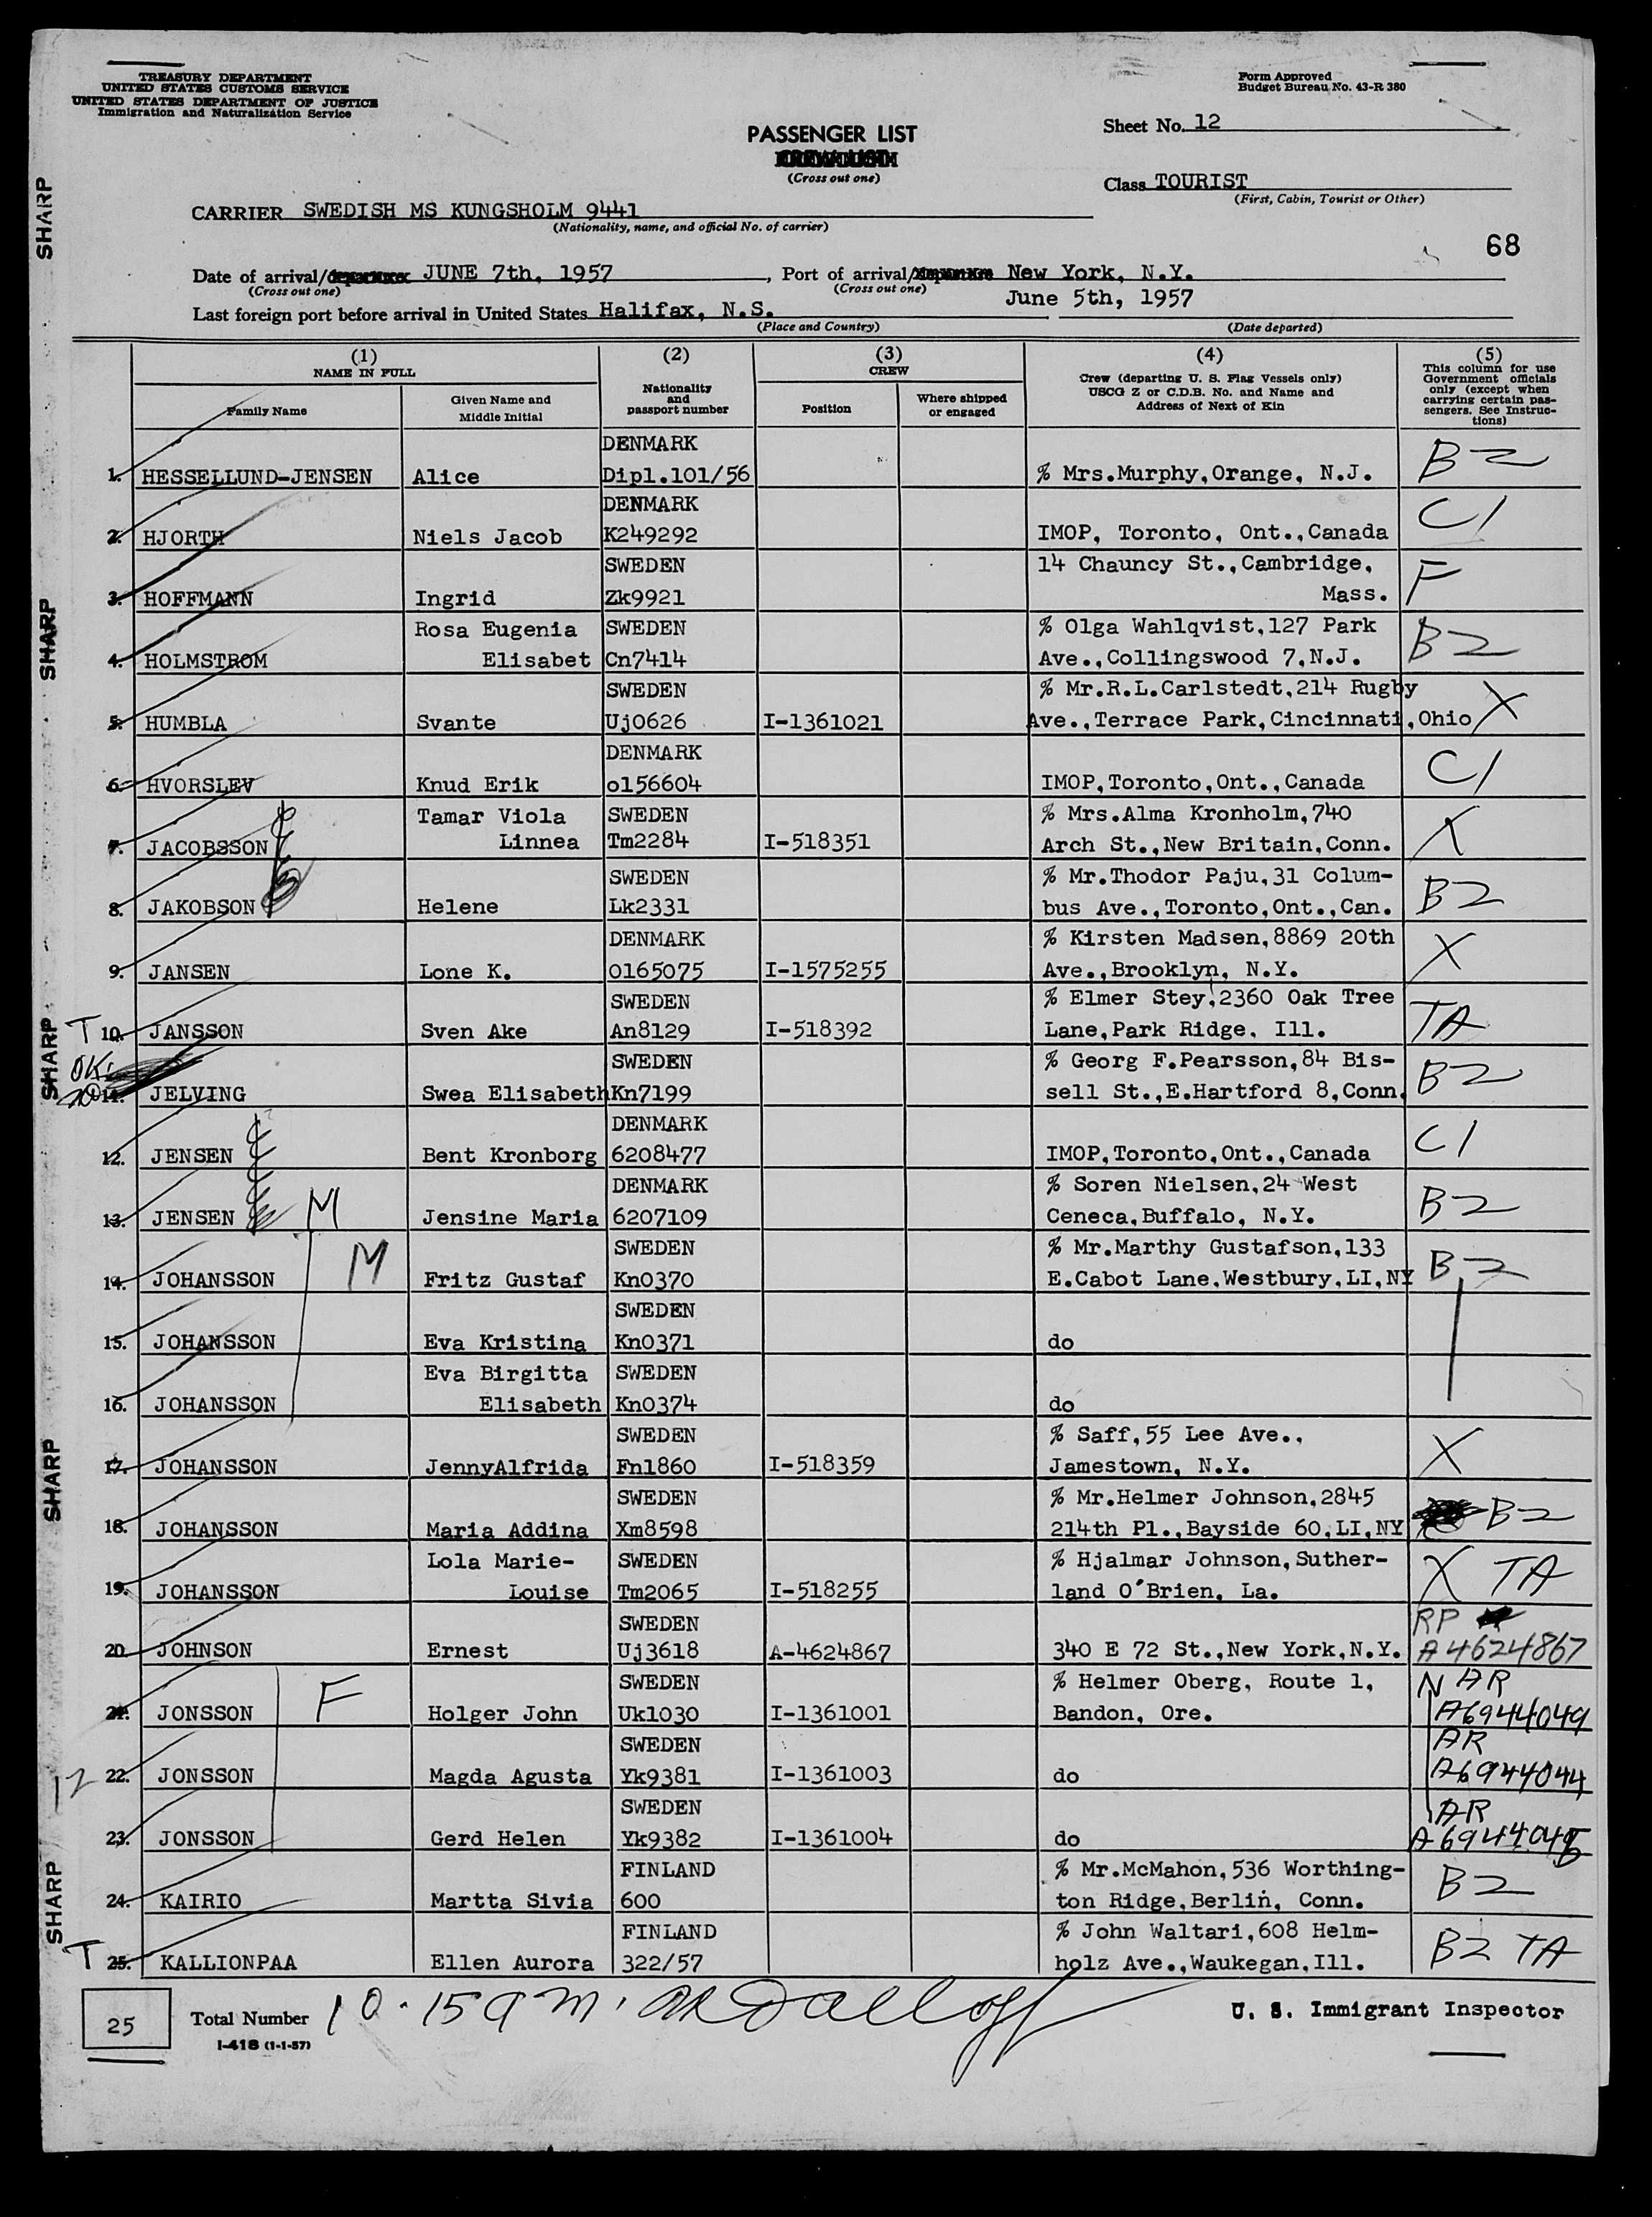 TREASURY DEPARTMENT
UNITED STATES CUSTOMS SERVICE
UNITED STATES DEPARTMENT OF JUSTICE
Immigration and Naturalization Service
Form Approved
Budget Bureau No. 43-R 380
PASSENGER LIST
(Cross out one)
Sheet No. 12
Class TOURIST
(First, Cabin, Tourist or Other)
CARRIER SWEDISH MS KUNGSHOLM 9441
(Nationality, name, and official No. of carrier)
68
Date of arrival/ JUNE 7th, 1957, Port of arrival/ New York, N.Y.
(Cross out one) (Cross out one)
June 5th, 1957
Last foreign port before arrival in United States Halifax, N.S.
(Place and Country) (Date departed)
(1) NAME IN FULL
Family Name
Given Name and Middle Initial
(2) Nationality and passport number
(3) CREW
Position
Where shipped or engaged
(4) Crew (departing U. S. Flag Vessels only) USCG Z or C.D.B. No. and Name and Address of Next of Kin
(5) This column for use Government officials only (except when carrying certain passengers. See Instructions)
DENMARK
1. HESSELLUND-JENSEN Alice Dipl.101/56 % Mrs.Murphy,Orange, N.J. B2
DENMARK
2. HJORTH Niels Jacob K249292 IMOP, Toronto, Ont.,Canada C1
SWEDEN 14 Chauncy St.,Cambridge,
3. HOFFMANN Ingrid Zk9921 Mass. F
Rosa Eugenia SWEDEN % Olga Wahlqvist,127 Park
4. HOLMSTROM Elisabet Cn7414 Ave.,Collingswood 7,N.J. B2
SWEDEN % Mr.R.L.Carlstedt,214 Rugby
5. HUMBLA Svante Uj0626 I-1361021 Ave.,Terrace Park,Cincinnati,Ohio X
DENMARK
6. HVORSLEV Knud Erik o156604 IMOP,Toronto,Ont.,Canada C1
Tamar Viola SWEDEN % Mrs.Alma Kronholm,740
7. JACOBSSON Linnea Tm2284 I-518351 Arch St.,New Britain,Conn. X
SWEDEN % Mr.Thodor Paju,31 Colum-
8. JAKOBSON Helene Lk2331 bus Ave.,Toronto,Ont.,Can. B2
DENMARK % Kirsten Madsen,8869 20th
9. JANSEN Lone K. 0165075 I-1575255 Ave.,Brooklyn, N.Y. X
SWEDEN % Elmer Stey,2360 Oak Tree
T 10. JANSSON Sven Ake An8129 I-518392 Lane,Park Ridge, Ill. TA
OK SWEDEN % Georg F.Pearsson,84 Bis-
11. JELVING Swea Elisabeth Kn7199 sell St.,E.Hartford 8,Conn. B2
DENMARK
12. JENSEN Bent Kronborg 6208477 IMOP,Toronto,Ont.,Canada C1
DENMARK % Soren Nielsen,24 West
13. JENSEN M Jensine Maria 6207109 Ceneca,Buffalo, N.Y. B2
SWEDEN % Mr.Marthy Gustafson,133
14. JOHANSSON M Fritz Gustaf Kn0370 E.Cabot Lane,Westbury,LI,NY B2
SWEDEN
15. JOHANSSON Eva Kristina Kn0371 do
Eva Birgitta SWEDEN
16. JOHANSSON Elisabeth Kn0374 do
SWEDEN % Saff,55 Lee Ave.,
17. JOHANSSON JennyAlfrida Fn1860 I-518359 Jamestown, N.Y. X
SWEDEN % Mr.Helmer Johnson,2845
18. JOHANSSON Maria Addina Xm8598 214th Pl.,Bayside 60,LI,NY B2
Lola Marie- SWEDEN % Hjalmar Johnson,Suther-
19. JOHANSSON Louise Tm2065 I-518255 land O'Brien, La. X TA
SWEDEN RP
20. JOHNSON Ernest Uj3618 A-4624867 340 E 72 St.,New York,N.Y. A4624867
SWEDEN % Helmer Oberg, Route 1, N AR
21. JONSSON F Holger John Uk1030 I-1361001 Bandon, Ore. A6944049
SWEDEN AR
2 22. JONSSON Magda Agusta Yk9381 I-1361003 do A6944044
SWEDEN AR
23. JONSSON Gerd Helen Yk9382 I-1361004 do A6944045
FINLAND % Mr.McMahon,536 Worthing-
24. KAIRIO Martta Sivia 600 ton Ridge,Berlin, Conn. B2
FINLAND % John Waltari,608 Helm-
T 25. KALLIONPAA Ellen Aurora 322/57 holz Ave.,Waukegan,Ill. B2 TA
25 Total Number 10.15 am.
U. S. Immigrant Inspector
I-418 (1-1-57)
SHARP
SHARP
SHARP
SHARP
SHARP